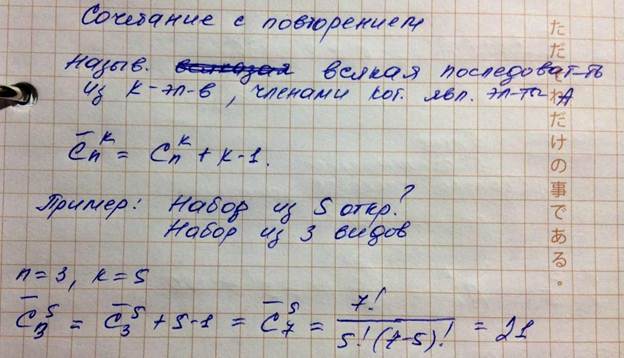 Сочетание с повторением
Назыв. всякая последоват-ть
из к-эл-в, членами кот. явл. эл-ты A
C̄ₙᵏ = Cₙᵏ + к-1.
Пример: Набор из 5 откр.?
Набор из 3 видов
n=3, к=5
C̄₃⁵ = C̄₃⁵ + 5-1 = C̄₇⁵ = 7! / 5!(7-5)! = 21
ただそれだけの事である。